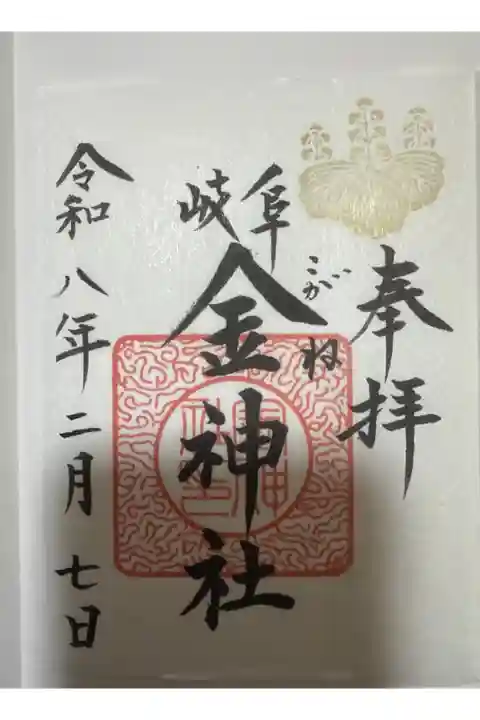 奉拝
岐阜
こがね
金神社
令和八年二月七日